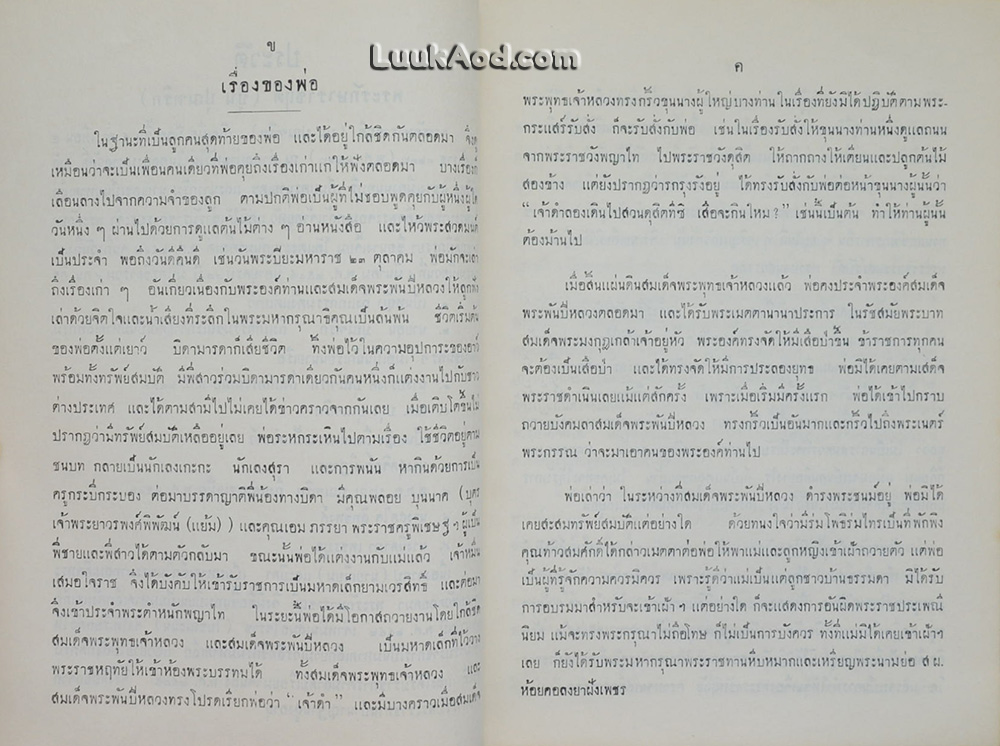 ข
LuukAod.com
เรื่องของพ่อ
ในฐานะที่เป็นลูกคนสุดท้ายของพ่อ และได้อยู่ใกล้ชิดกันตลอดมา จึงดู
เหมือนว่าจะเป็นเพื่อนคนเดียวที่พ่อคุยถึงเรื่องเก่าแก่ให้ฟังตลอดมา บางเรื่อง
เลือนลางไปจากความจำของลูก ตามปกติพ่อเป็นผู้ที่ไม่ชอบพูดคุยกับผู้หนึ่งผู้ใด
วันหนึ่ง ๆ ผ่านไปด้วยการดูแลต้นไม้ต่าง ๆ อ่านหนังสือ และไหว้พระสวดมนต์
เป็นประจำ พอถึงวันดีคืนดี เช่นวันพระปิยะมหาราช ๒๓ ตุลาคม พ่อมักจะเล่า
ถึงเรื่องเก่า ๆ อันเกี่ยวเนื่องกับพระองค์ท่านและสมเด็จพระพันปีหลวงให้ลูกฟัง
เล่าด้วยจิตใจและน้ำเสียงที่ระลึกในพระมหากรุณาธิคุณเป็นล้นพ้น ชีวิตเริ่มต้น
ของพ่อตั้งแต่เยาว์ บิดามารดาก็เสียชีวิต ทิ้งพ่อไว้ในความอุปการะของอาว์
พร้อมทั้งทรัพย์สมบัติ มีพี่สาวร่วมบิดามารดาเดียวกันคนหนึ่งก็แต่งงานไปกับชาว
ต่างประเทศ และได้ตามสามีไปไม่เคยได้ข่าวคราวจากกันเลย เมื่อเติบโตขึ้นไม่
ปรากฏว่ามีทรัพย์สมบัติเหลืออยู่เลย พ่อระหกระเหินไปตามเรื่อง ใช้ชีวิตอยู่ตาม
ชนบท กลายเป็นนักเลงเกะกะ นักเลงสุรา และการพนัน หากินด้วยการเป็น
ครูกระบี่กระบอง ต่อมาบรรดาญาติพี่น้องทางบิดา มีคุณพลอย บุนนาค (บุตร
เจ้าพระยาวรพงศ์พิพัฒน์ (แย้ม) ) และคุณเอม ภรรยา พระราชครูพิเชษฐ์ ฯ ผู้เป็น
พี่ชายและพี่สาวได้ตามตัวกลับมา ขณะนั้นพ่อได้แต่งงานกับแม่แล้ว เจ้าหมื่น
เสมอใจราช จึงได้บังคับให้เข้ารับราชการเป็นมหาดเล็กยามเวรสิทธิ์ และต่อมา
จึงเข้าประจำพระตำหนักพญาไท ในระยะนี้พ่อได้มีโอกาสถวายงานโดยใกล้ชิด
สมเด็จพระพุทธเจ้าหลวง และสมเด็จพระพันปีหลวง เป็นมหาดเล็กที่ไว้วาง
พระราชหฤทัยให้เข้าห้องพระบรรทมได้ ทั้งสมเด็จพระพุทธเจ้าหลวง และ
สมเด็จพระพันปีหลวงทรงโปรดเรียกพ่อว่า "เจ้าดำ" และมีบางคราวเมื่อสมเด็จ
ค
พระพุทธเจ้าหลวงทรงกริ้วขุนนางผู้ใหญ่บางท่าน ในเรื่องที่ยังมิได้ปฏิบัติตามพระ-
กระแสร์รับสั่ง ก็จะรับสั่งกับพ่อ เช่นในเรื่องรับสั่งให้ขุนนางท่านหนึ่งดูแลถนน
จากพระราชวังพญาไท ไปพระราชวังดุสิต ให้ถากถางให้เตียนและปลูกต้นไม้
สองข้าง แต่ยังปรากฏว่ารกรุงรังอยู่ ได้ทรงรับสั่งกับพ่อต่อหน้าขุนนางผู้นั้นว่า
"เจ้าดำลองเดินไปสวนดุสิตทีซิ เสือจะกินไหม?" เช่นนี้เป็นต้น ทำให้ท่านผู้นั้น
ต้องม้านไป
เมื่อสิ้นแผ่นดินสมเด็จพระพุทธเจ้าหลวงแล้ว พ่อคงประจำพระองค์สมเด็จ
พระพันปีหลวงตลอดมา และได้รับพระเมตตานานาประการ ในรัชสมัยพระบาท
สมเด็จพระมงกุฎเกล้าเจ้าอยู่หัว พระองค์ทรงจัดให้มีเสือป่าขึ้น ข้าราชการทุกคน
จะต้องเป็นเสือป่า และได้ทรงจัดให้มีการประลองยุทธ พ่อมิได้เคยตามเสด็จ
พระราชดำเนินเลยแม้แต่สักครั้ง เพราะเมื่อเริ่มมีครั้งแรก พ่อได้เข้าไปกราบ
ถวายบังคมลาสมเด็จพระพันปีหลวง ทรงกริ้วเป็นอันมากและกริ้วไปถึงพระเนตร์
พระกรรณ ว่าจะมาเอาคนของพระองค์ท่านไป
พ่อเล่าว่า ในระหว่างที่สมเด็จพระพันปีหลวง ดำรงพระชนม์อยู่ พ่อมิได้
เคยสะสมทรัพย์สมบัติแต่อย่างใด ด้วยทนงใจว่ามีร่มโพธิ์ร่มไทรเป็นที่พักพิง
คุณท้าวสมศักดิ์ได้กล่าวเมตตาต่อพ่อให้พาแม่และลูกหญิงเข้าเฝ้าถวายตัว แต่พ่อ
เป็นผู้ที่รู้จักความควรมิควร เพราะรู้ดีว่าแม่เป็นแต่ลูกชาวบ้านธรรมดา มิได้รับ
การอบรมมาสำหรับจะเข้าเฝ้า ฯ แต่อย่างใด ก็จะแสดงการอันผิดพระราชประเพณี
นิยม แม้จะทรงพระกรุณาไม่ถือโทษ ก็ไม่เป็นการบังควร ทั้งที่แม่มิได้เคยเข้าเฝ้าฯ
เลย ก็ยังได้รับพระมหากรุณาพระราชทานหีบหมากและเหรียญพระนามย่อ ส ผ.
ห้อยคอลงยาฝังเพชร